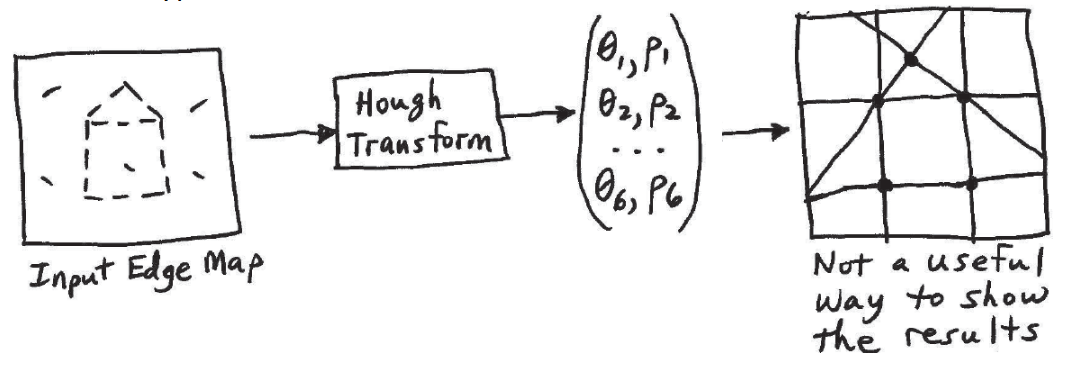 Input Edge Map
Hough
Transform
θ1, ρ1
θ2, ρ2
...
θ6, ρ6
Not a useful
way to show
the results